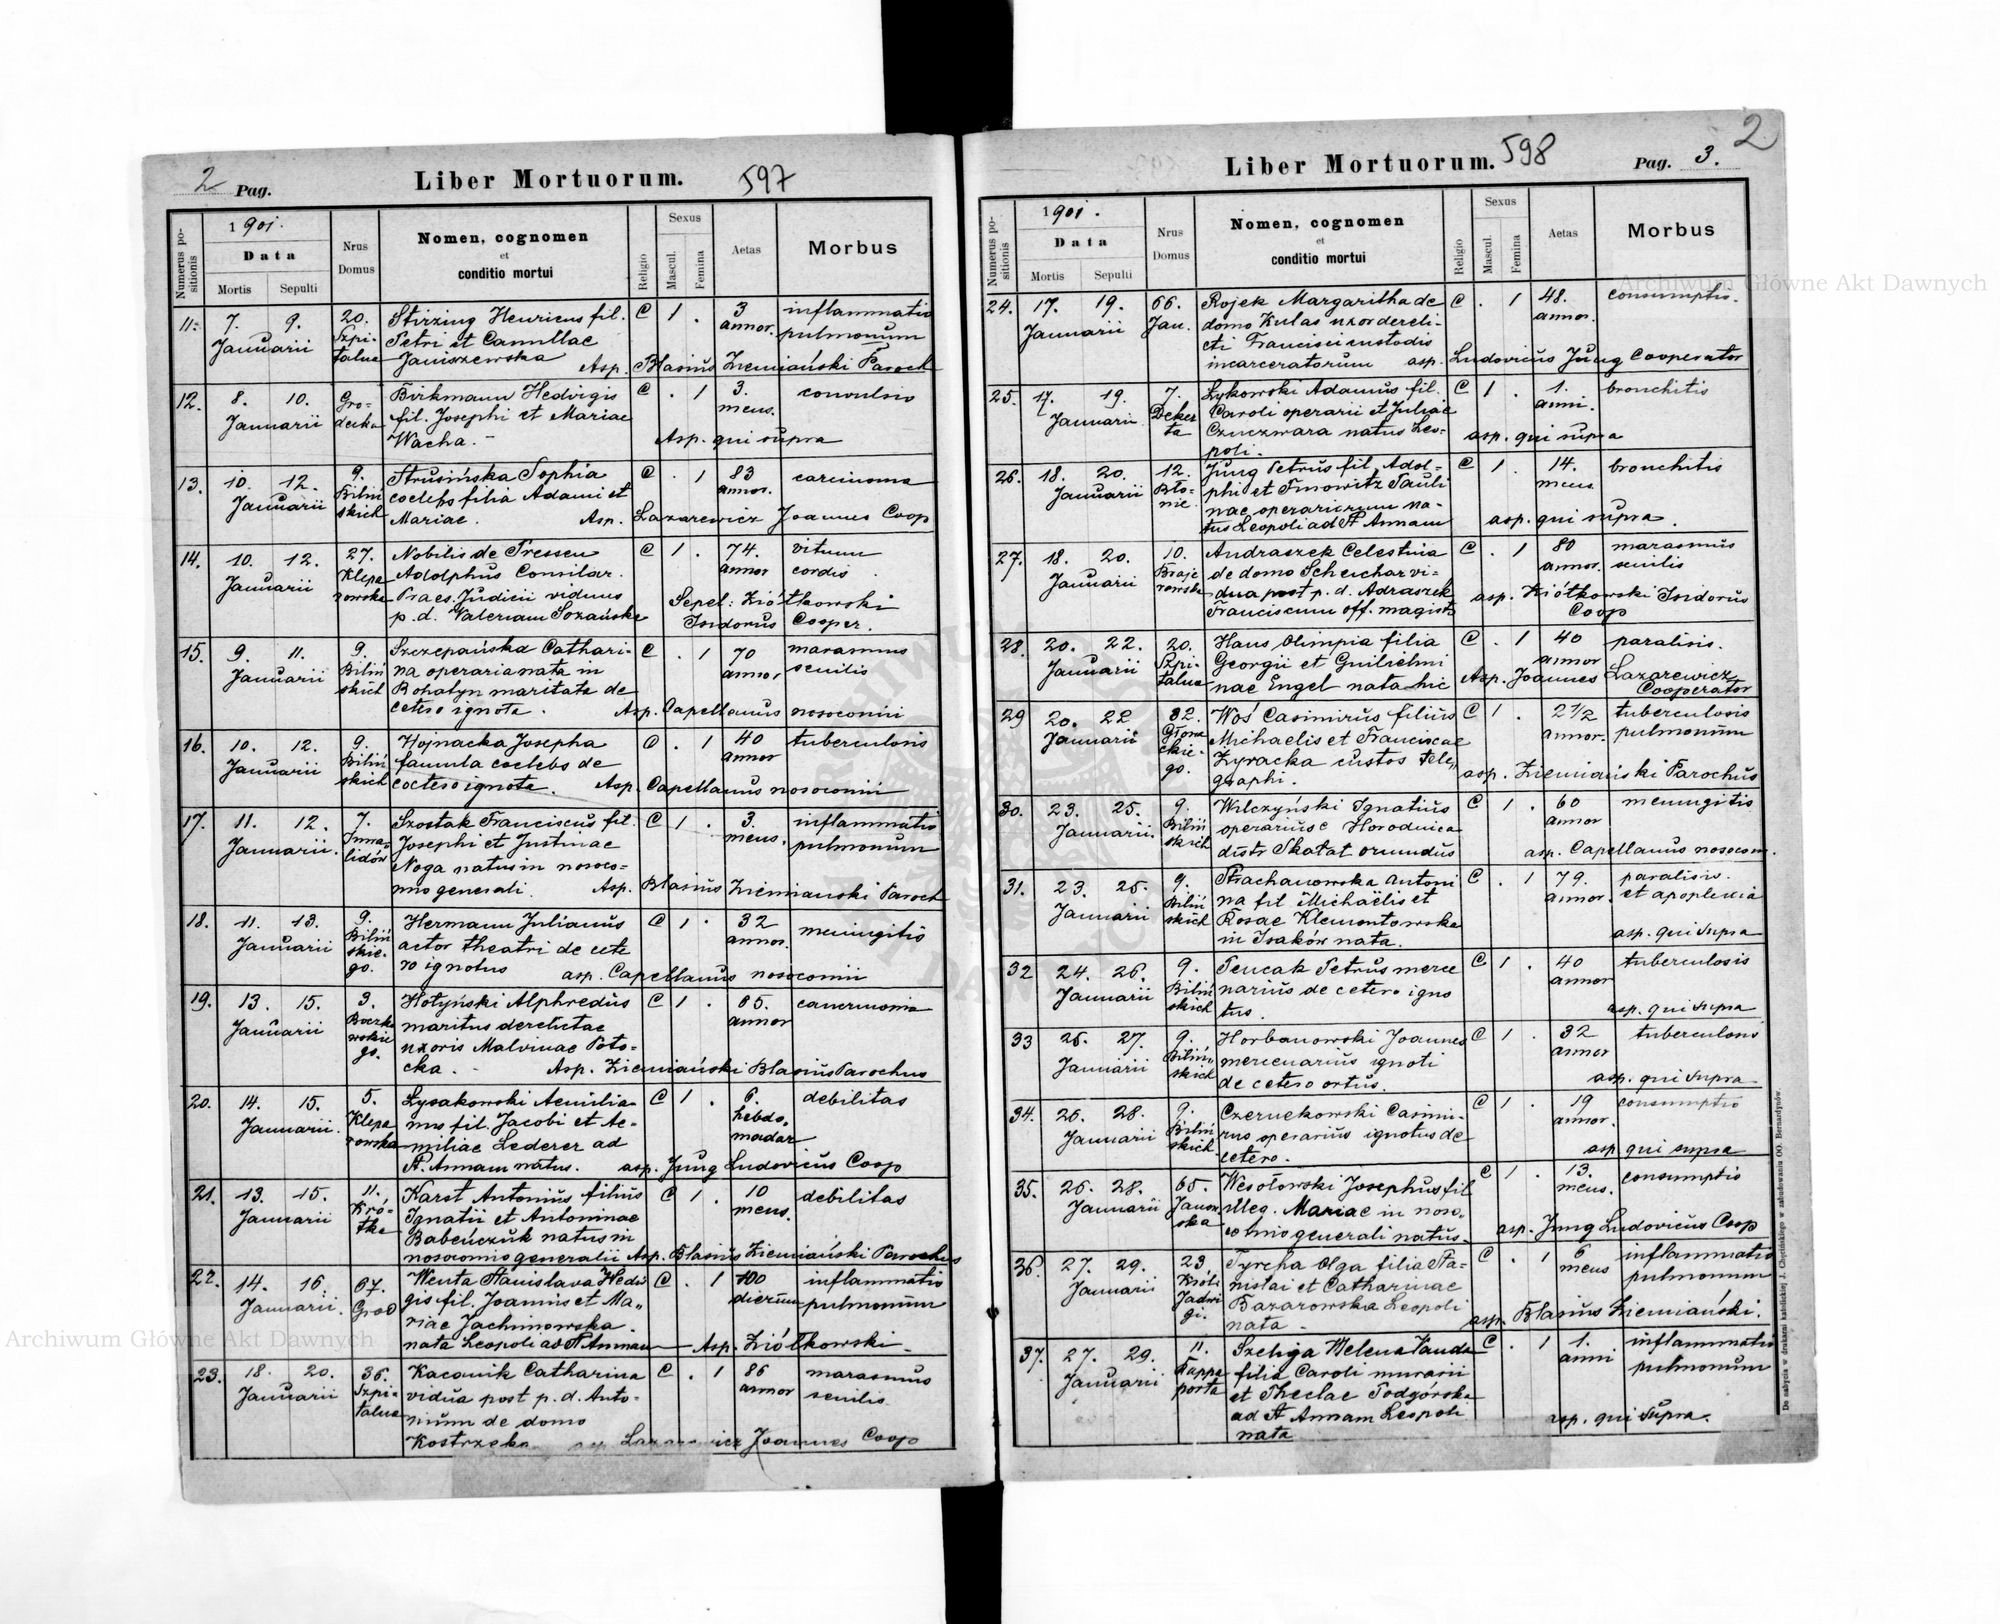 2 Pag.
Liber Mortuorum.
597
Numerus positionis
1901.
Data
Mortis
Sepulti
Nrus Domus
Nomen, cognomen
et
conditio mortui
Religio
Sexus
Mascul.
Femina
Aetas
Morbus
11. 7. 9. 20. Stirzing Henricus fil. C 1 . 3 inflammatio
Januarii Szpi- Petri et Camillae annor. pulmonum
talna Janiszewska Asp. Blasius Ziemiański Paroch
12. 8. 10. Gro- Birkmann Hedvigis C . 1 3. convulsio
Januarii decka fil. Josephi et Mariae mens.
Wacha. - Asp. qui supra
13. 10. 12. 9. Strusińska Sophia C . 1 83 carcinoma
Januarii Biliń coelebs filia Adami et annor.
skich Mariae. Asp. Lazarewicz Joannes Coop
14. 10. 12. 27. Nobilis de Pressen C 1 . 74. vitium
Januarii Klepa Adolphus Consiliar. annor cordis.
rowska Praes. Judicii viduus Sepel: Ziółkowski
p. d. Valeriam Sozańska Isidorus Cooper.
15. 9. 11. 9. Szczepańska Cathari- C . 1 70 marasmus
Januarii Biliń na operaria nata in annor, senilis
skich Rohatyn maritata de
cetero ignota. Asp. Capellanus nosocomii
16. 10. 12. 9. Hojnacka Josepha C . 1 40 tuberculosis
Januarii Biliń famula coelebs de annor
skich coetero ignota. Asp. Capellanus nosocomii
17. 11. 12. 7. Szostak Franciscus fil. C 1 . 3. inflammatio
Januarii. Inwa- Josephi et Justinae mens. pulmonum
lidów Noga natus in nosoco-
mio generali. Asp. Blasius Ziemianski Paroch
18. 11. 13. 9. Hermann Julianus C 1 . 32 meningitis
Januarii Biliń actor theatri de cete annor.
skie- ro ignotus asp. Capellanus nosocomii
go.
19. 13. 15. 3. Hotyński Alphredus C 1 . 65. carcinoma
Januarii Boczko maritus derelictae annor
wskie uxoris Malvinae Poto-
go. cka. - Asp. Ziemiański Blasius Parochus
20. 14. 15. 5. Lysakowski Aemilia- C 1 . 6. debilitas
Januarii. Klepa nus fil. Jacobi et Ae- hebdo-
rowska miliae Lederer ad madar
St. Annam natus. asp. Jung Ludovicus Coop
21. 13. 15. 11. Karst Antonius filius C 1 . 10 debilitas
Januarii Kró- Ignatii et Antoninae mens.
tka Babeńczuk natus in
nosocomio generalii Asp. Blasius Ziemiański Parochus
22. 14. 16. 67. Wenta Stanislava Hedvi C . 1 100 inflammatio
Januarii. Grod gis fil. Joannis et Ma- dierum pulmonum
riae Jachimowska
nata Leopoli ad St Annam Asp. Ziółkowski.
23. 18. 20. 36. Kacownik Catharina C . 1 86 marasmus
Januarii Szpi- vidua post p. d. Anto- annor senilis
talna nium de domo
Kostrzeka asp Lazarewicz Joannes Coop
Liber Mortuorum.
598
Pag. 3.
2
Numerus positionis
1901.
Data
Mortis
Sepulti
Nrus Domus
Nomen, cognomen
et
conditio mortui
Religio
Sexus
Mascul.
Femina
Aetas
Morbus
24. 17. 19. 66. Rojek Margaritha de C . 1 48. consumptio.
Januarii Jan. domo Kulas uxor dereli- annor.
cti Francisci custodis
incarceratorum asp. Ludovicus Jung Cooperator
25. 17. 19. 7. Lykowski Adamus fil. C 1 . 1. bronchitis
Januarii Deker Caroli operarii et Juliae anni.
ta Czuczwara natus Leo- asp. qui supra
poli.
26. 18. 20. 12. Jung Petrus fil. Adol- C 1 . 14. bronchitis
Januarii Bło- phi et Tmowitz Pauli mens.
nie. nae operariorum na-
tus Leopoli ad St Annam asp. qui supra.
27. 18. 20. 10. Andraszek Celestina C . 1 80 marasmus
Januarii Braje de domo Scheichar vi- annor. senilis
rowska dua post p. d. Adraszek asp. Ziółkowski Isidorus
Franciscum off. magistr Coop
28. 20. 22. 20. Haus Olimpia filia C . 1 40 paralisis.
Januarii Szpi- Georgii et Guilielmi annor
talna nae Engel nata hic Asp. Joannes Lazarewicz
Cooperator
29 20. 22 32. Woś Casimirus filius C 1 . 2 1/2 tuberculosis
Januarii Głowa Michaelis et Franciscae annor. pulmonum
ckie- Zyracka custos tele-
go. graphi. asp. Ziemiański Parochus
30. 23. 25. 9. Wilczyński Ignatius C 1 . 60 meningitis
Januarii. Biliń operarius e Horodnica annor
skich distr Skałat oriundus asp. Capellanus nosocom.
31. 23. 25. 9. Strachanowska Antoni C . 1 79. paralisis.
Januarii Biliń na fil Michaëlis et annor. et apoplexia
skich Rosae Klemontowska
in Isaków nata. asp. qui supra
32 24. 26. 9. Pencak Petrus merce C 1 . 40 tuberculosis
Januarii Biliń narius de cetero igno annor
skich tus. asp. qui supra
33 25. 27. 9. Horbanowski Joannes C 1 . 32 tuberculosis
Januarii Biliń mercenarius ignoti annor
skich de cetero ortus. asp. qui supra
34. 26. 28. 9. Czernekowski Casimi- C 1 . 19 consumptio
Januarii Biliń rus operarius ignotus de annor.
skich cetero. asp qui supra
35. 26. 28. 65. Wesołowski Josephus fil C 1 . 13. consumptio
Januarii Janow illeg. Mariae in noso- mens.
ska comio generali natus. asp. Jung Ludovicus Coop
36. 27. 29. 23. Tyrcha Olga filia Sta- C . 1 6 inflammatio
Januarii Królo nislai et Catharinae mens pulmonum
Jadwi Bazarowska Leopoli
gi. nata. asp. Blasius Ziemiański.
37. 27. 29. 11. Szeliga Helena Vanda C . 1 1. inflammatio
Januarii Rappa filia Caroli murarii anni pulmonum
porta et Theclae Podgórska
ad St Annam Leopoli asp. qui supra.
nata
Do nabycia w drukarni katolickiej J. Chęcińskiego w zabudowaniu OO. Bernardynów.
Archiwum Główne Akt Dawnych
Archiwum Główne Akt Dawnych